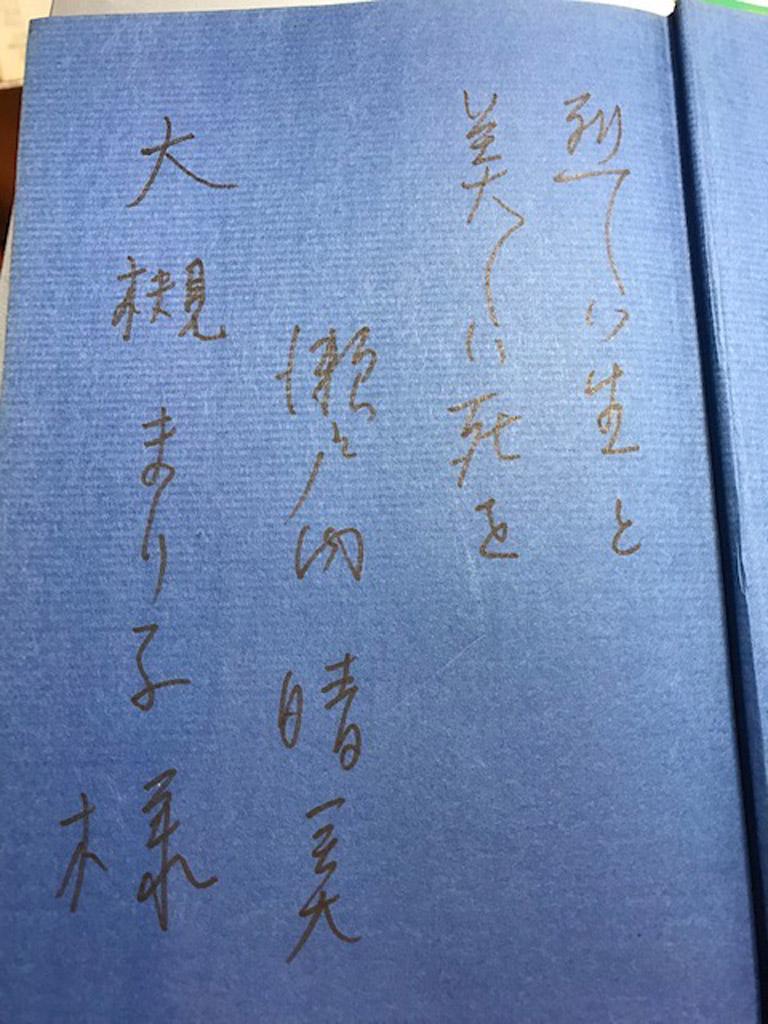 烈しい生と
美しい死を
瀬戸内 晴美
大槻 まり子 様